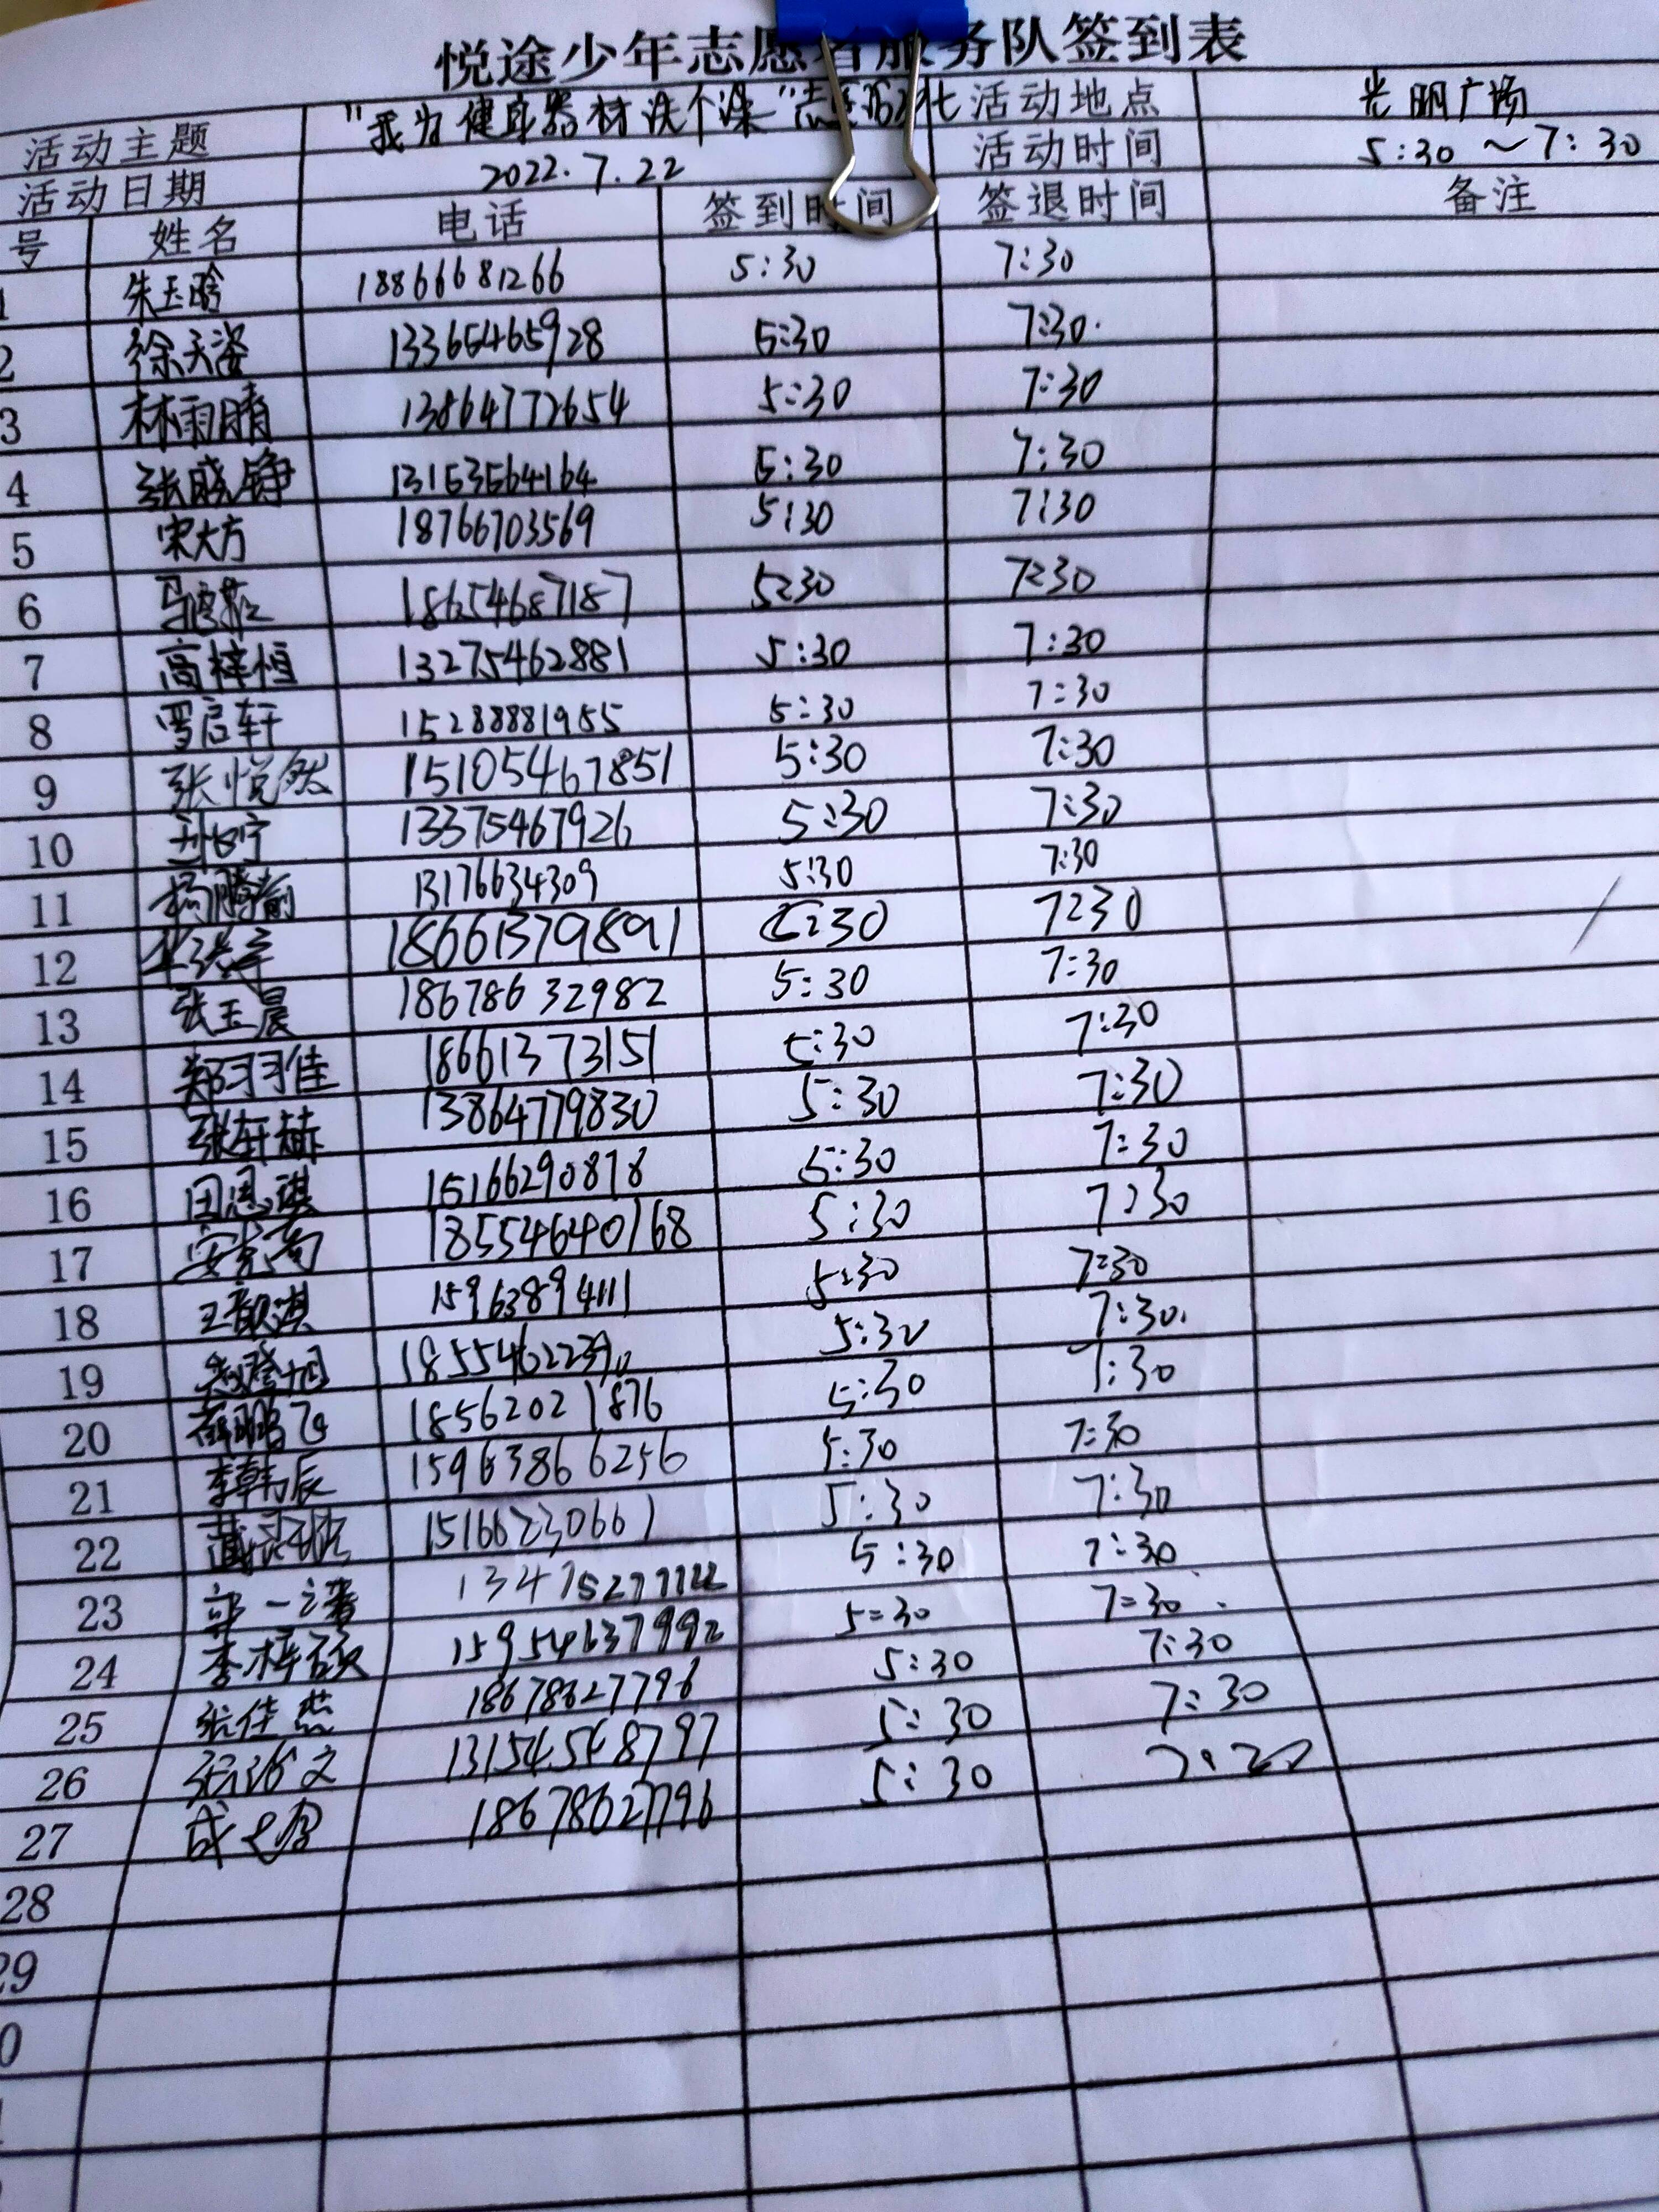 悦途少年志愿者服务队签到表
活动主题 "我为健身器材洗个澡"志愿活动 活动地点 光明广场
活动日期 2022.7.22 活动时间 5:30～7:30
号 姓名 电话 签到时间 签退时间 备注
1 朱玉晗 18866681266 5:30 7:30
2 徐天 13365465928 5:30 7:30
3 林雨晴 13864772654 5:30 7:30
4 张晓铮 13153564164 5:30 7:30
5 宋大方 18766703569 5:30 7:30
6 18654687187 5:30 7:30
7 高梓恒 13275462881 5:30 7:30
8 启轩 15288881955 5:30 7:30
9 张悦然 15105467851 5:30 7:30
10 13375467926 5:30 7:30
11 杨腾 13176634309 5:30 7:30
12 186613798891 5:30 7:30
13 张玉晨 18678632982 5:30 7:30
14 郑羽佳 18661373151 5:30 7:30
15 张轩赫 13864779830 5:30 7:30
16 田思琪 15166290878 5:30 7:30
17 安 18554640168 5:30 7:30
18 王歆淇 15963894111 5:30 7:30
19 5:30 7:30
20 薛鹏飞 18562021876 5:30 7:30
21 李韩辰 15963866256 5:30 7:30
22 15166230661 5:30 7:30
23 郭一 5:30 7:30
24 李梓硕 5:30 7:30
25 张佳 18678627796 5:30 7:30
26 文 13154548797 5:30 7:30
27 成 18678627796 5:30
28
29
0